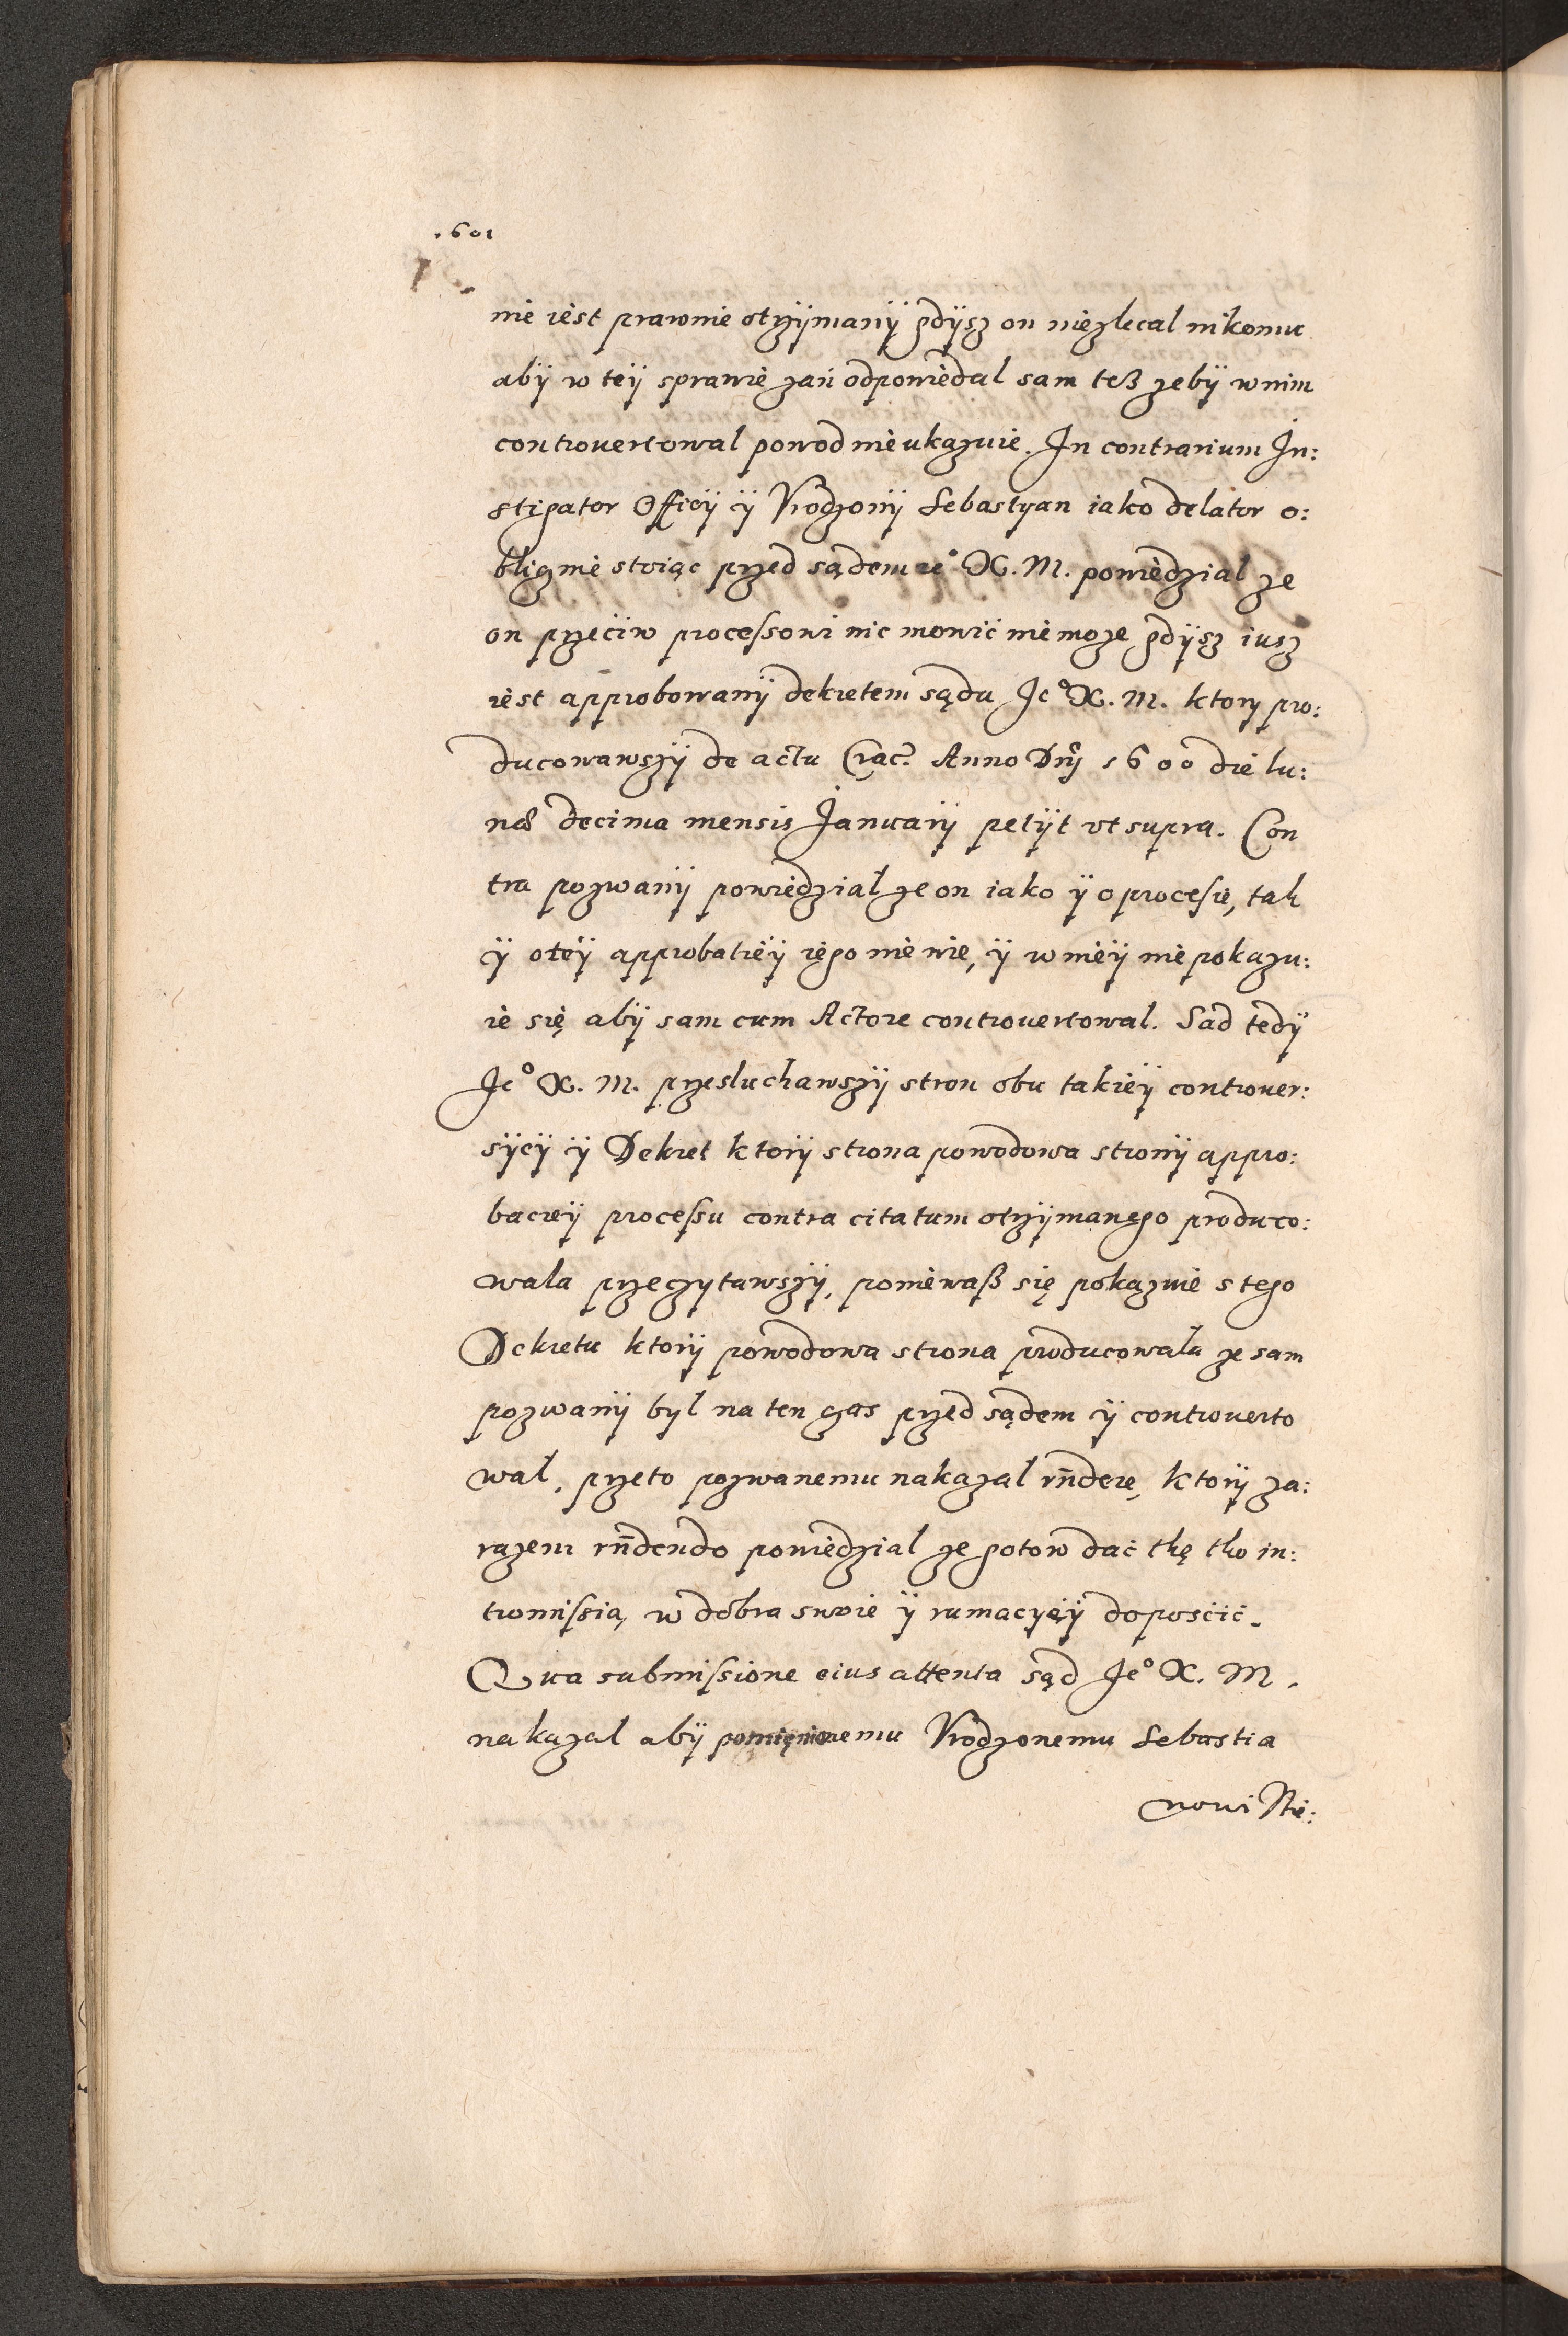 .601
nie iest prawnie otrzÿmanÿ gdÿsz on niezlecal nikomu
abÿ w teÿ sprawie zań odpowiedal sam teß zebÿ w nim
controuertowal powod nie ukazuie. In contrarium In:
stigator Officÿ ÿ Vrodzonÿ Sebastyan iako delator o:
blicznie stoiąc przed sądem ie° X. M. powiedzial ze
on przeciw processowi nic mowić nie moze gdÿsz iusz
iest approbowanÿ dekretem sądu Je° X. M. ktory pro:
ducowawszÿ de actu Crac. Anno Dnĩ 1600 die lu:
næ decima mensis Januarÿ petÿt vt supra. Con
tra pozwanÿ powiedzial ze on iako ÿ o procesie, tak
ÿ o teÿ approbatieÿ iego nie wie, ÿ w nieÿ nie pokazu:
ie się abÿ sam cum Actore controuertowal. Sad tedÿ
Je° X. M. przesluchawszÿ stron obu takieÿ controuer:
sÿeÿ ÿ Dekret ktorÿ strona powodowa stronÿ appro:
bacieÿ processu contra citatum otrzÿmanego produco:
wala przeczytawszÿ, poniewaß się pokazuie s tego
Dekretu ktorÿ powodowa strona producowala ze sam
pozwanÿ byl na ten czas przed sądem ÿ controuerto
wal, przeto pozwanemu nakazal rñdere, ktorÿ za:
razem rñdendo powiedzial ze gotow dać tkę tko in:
tromissią w dobra swoie ÿ rumacyeÿ doposcić.
Qua submissione eius attenta sąd Je° X. M.
nakazal abÿ pomienionemu Vrodzonemu Sebastia
nowi Nie: